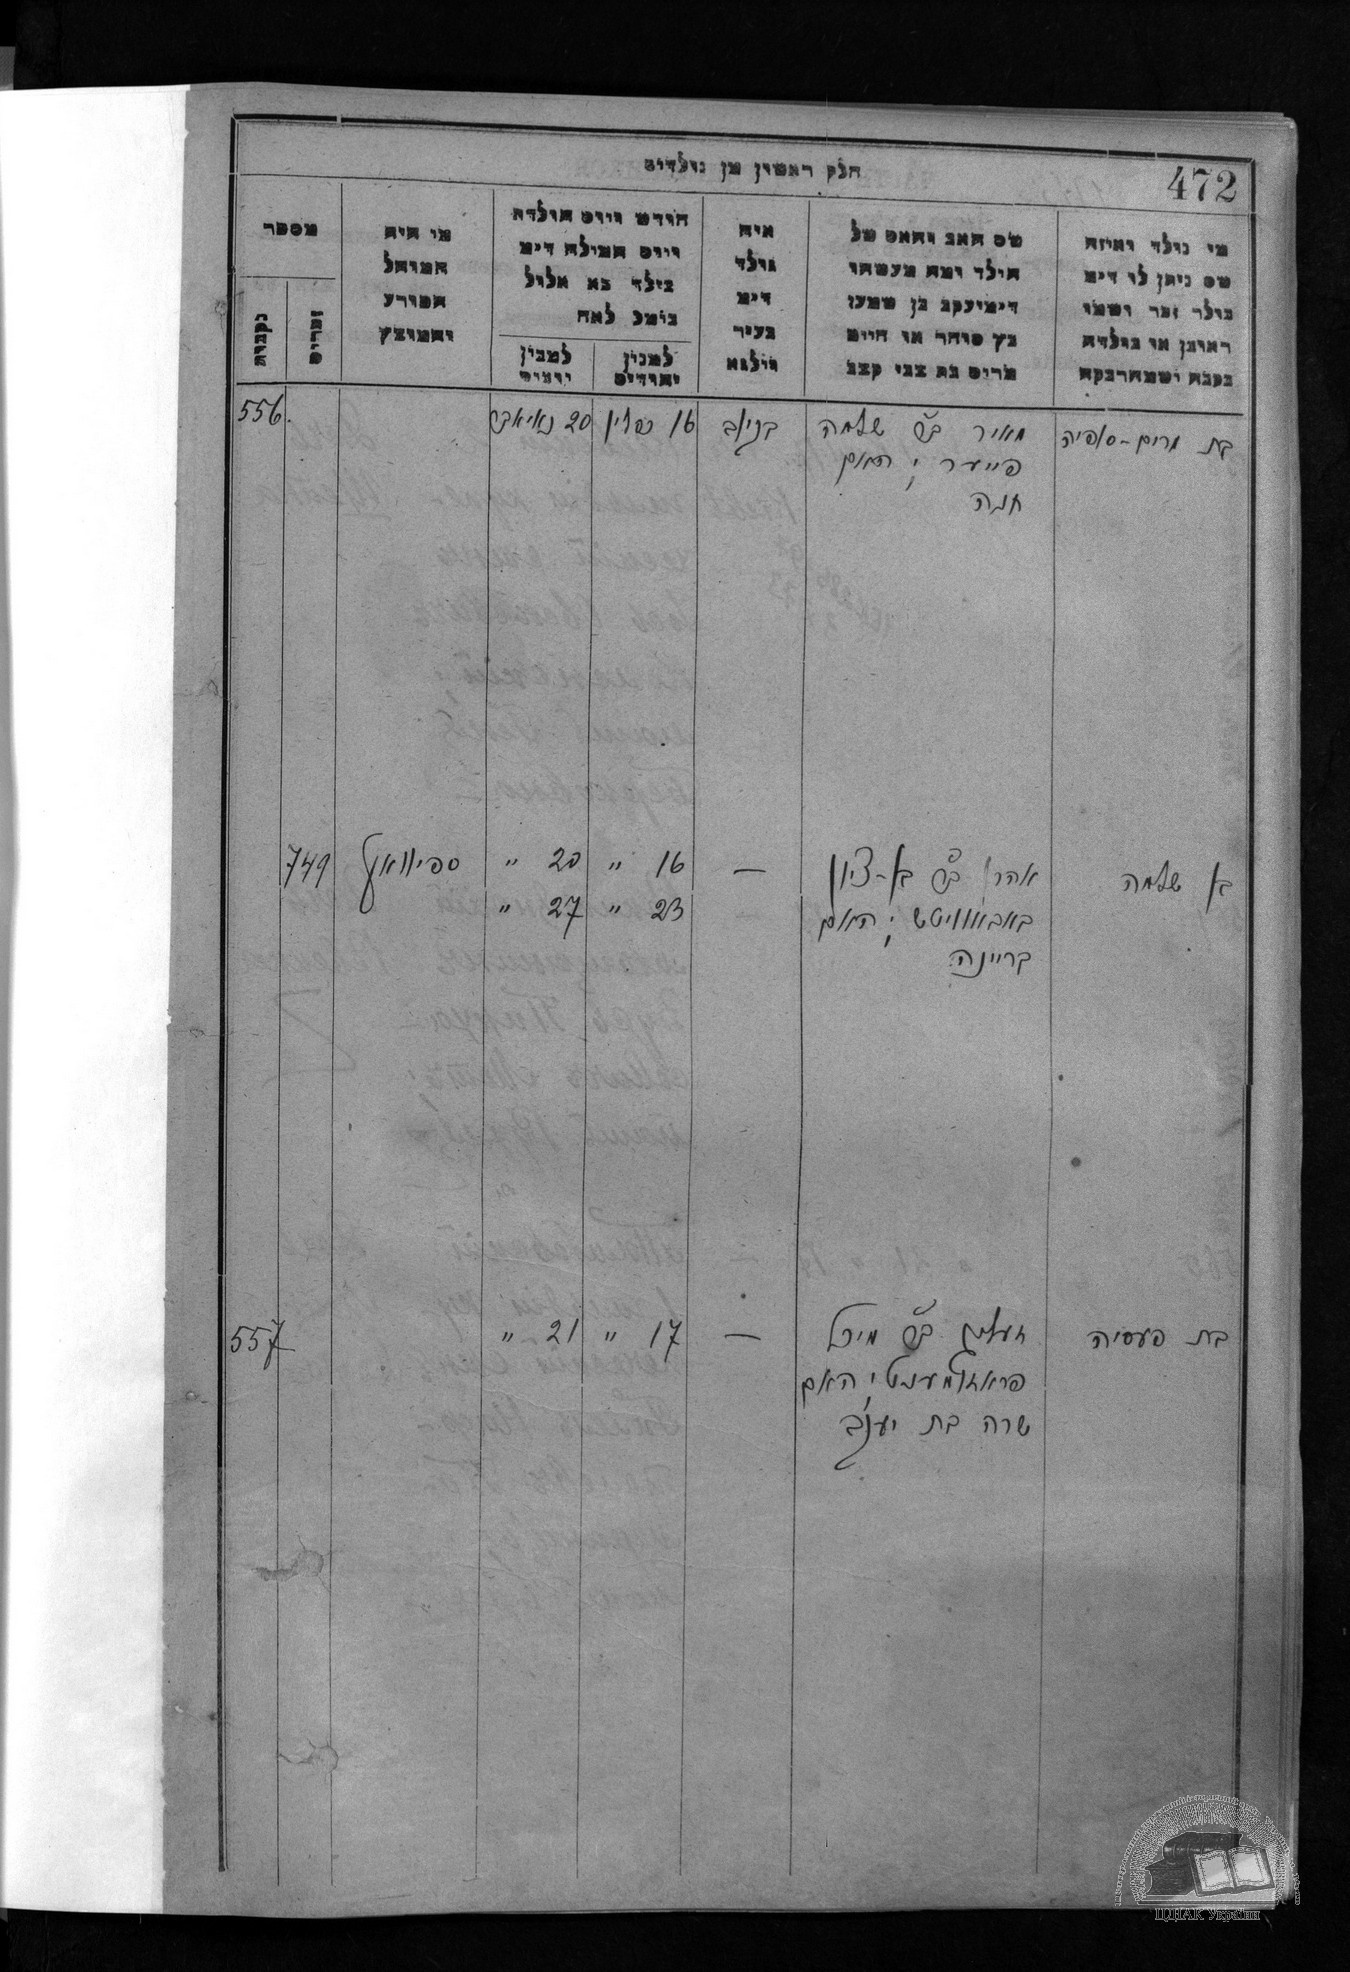 חלק ראשין מן נולדים
472
מי נולד ואיזה
שם ניתן לו דימ
נולד זכר ושמו
ראובן או נולדה
נקבה ושמה רבקה
שם האב והאם של
הילד ומה מעשהו
דימיעקב בן שמעון
כץ סוחר או חיים
מרים בת צבי קצב
איה
נולד
דימ
בעיר
ווילנא
חודש ויום הולדה
ויום המילה דימ
נילד בא אלול
נימול לאה
למנין
יהודים
למנין
יונים
מי היה
המוהל
הפורע
והמוצץ
מספר
זכרים
נקבות
בת מרים-סופיה
מאיר ב"ר שלמה
פייער ; האם
חנה
בקיוב
16 כסליו
20 נאיאבר
556.
בן שלמה
אהרן ב"ר בן-ציון
באבאוויטש ; האם
בריינה
—
16 "
20 "
23 "
27 "
ספיוואק
749
בת פעסיה
זעליג ב"ר מיכל
; האם
שרה בת יעקב
—
17 "
21 "
557
ЦДІАК України